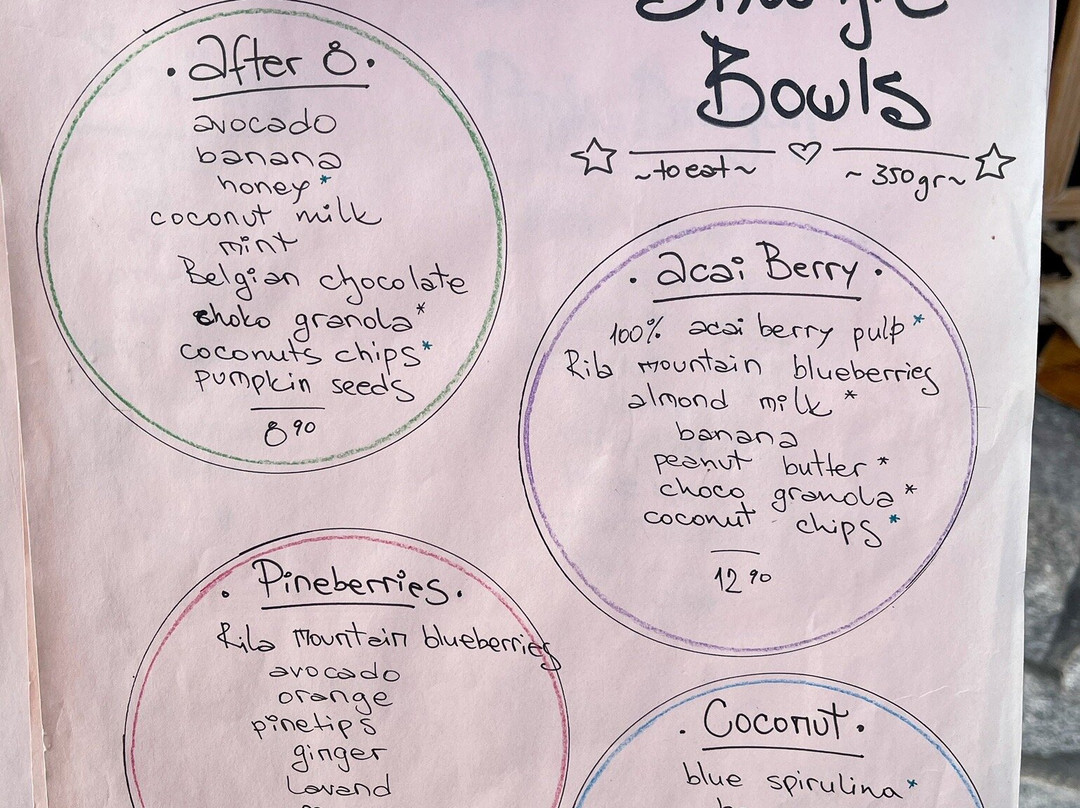 Bowls
~to eat~ ~350gr~
• After 8 •
avocado
banana
honey*
coconut milk
mint
Belgian chocolate
choko granola*
coconuts chips*
pumpkin seeds
8 90
• acai Berry •
100% acai berry pulp*
Rila mountain blueberries
almond milk*
banana
peanut butter*
choco granola*
coconut chips*
12 90
• Pineberries •
Rila Mountain blueberries
avocado
orange
pinetips
ginger
Lavand
• Coconut •
blue spirulina*